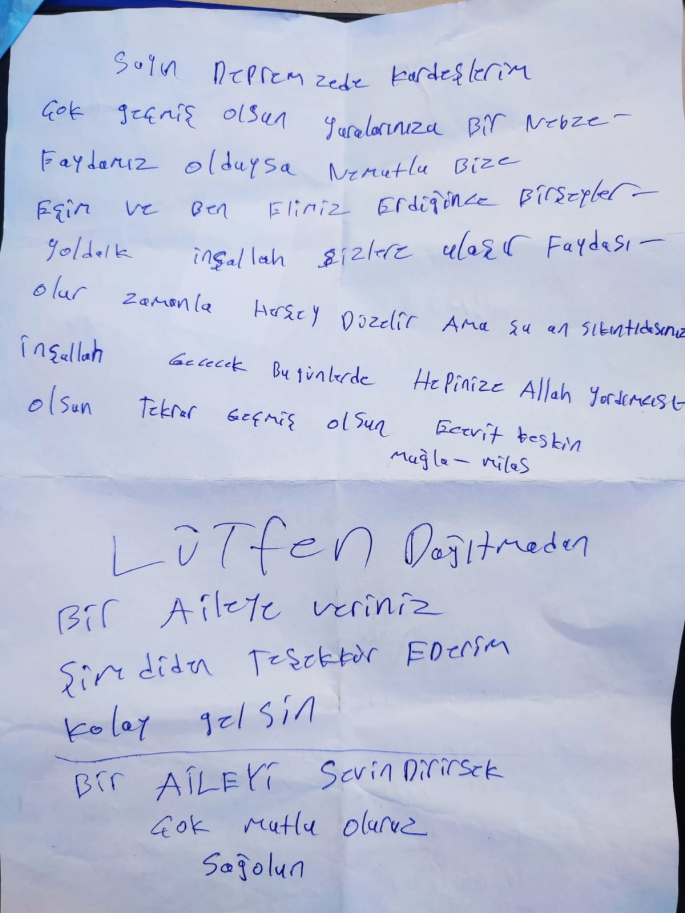 Sayın Depremzede kardeşlerim
Çok geçmiş olsun yaralarınıza Bir Nebze-
Faydamız olduysa Nemutlu Bize
Eşim ve Ben Elimiz Erdiğince Birşeyler-
yoldalk inşallah sizlere ulaşır Faydası-
olur zamanla Herşey Düzelir Ama şu an sıkıntıdasınız
inşallah Gececek Bugünlerde Hepinize Allah yardımcısı-
olsun Tekrar Geçmiş olsun Ecevit keskin
Muğla-Milas
LÜTfen Dağıtmadan
Bir Aileye veriniz
Şimdiden Teşekkür EDerim
kolay gelsin
Bir AİLEYİ SevinDirirsek
Çok mutlu oluruz
Sağolun